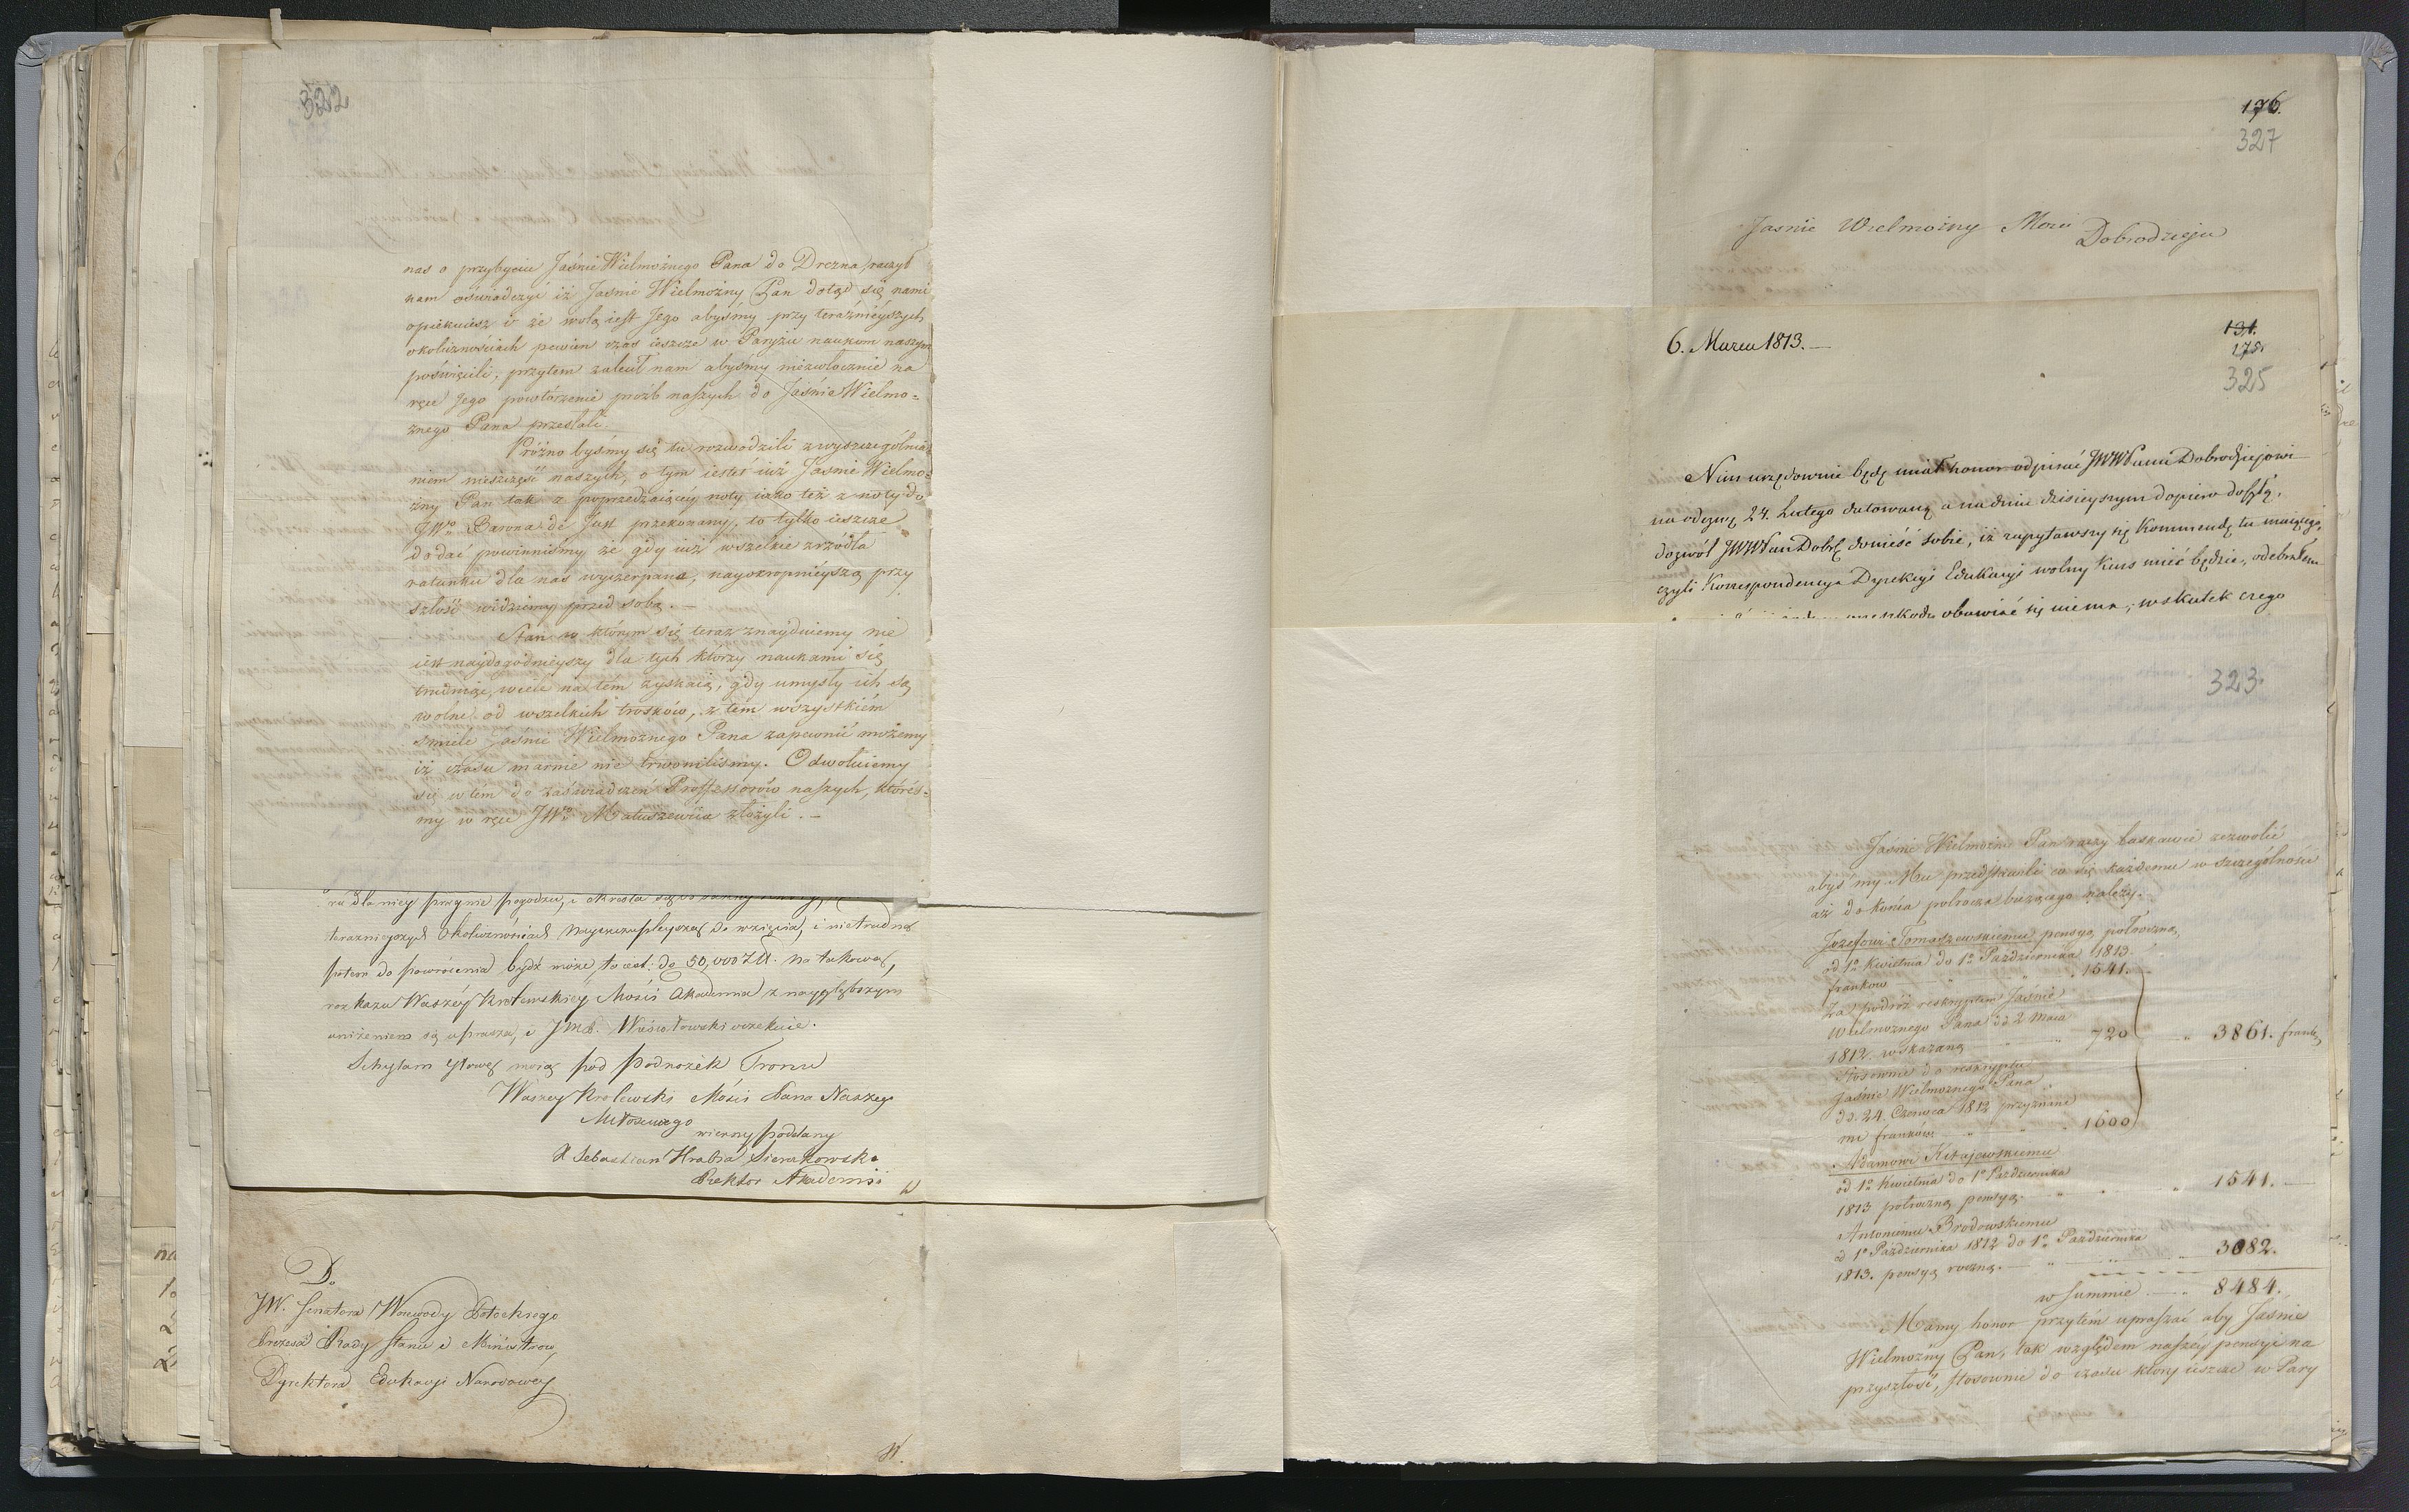 322
nas o przybyciu Jaśnie Wielmożnego Pana do Drezna, raczył
nam oświadczyć iż Jaśnie Wielmożny Pan dotąd się nami
opiekuiesz i że wolą iest Jego abyśmy przy teraźnieyszych
okolicznościach pewien czas ieszcze w Paryżu naukom naszym
poświęcili; przytem zalecił nam abyśmy niezwłocznie na
ręce Jego powtórzenie proźb naszych do Jaśnie Wielmo=
żnego Pana przesłali.
Próżno byśmy się tu rozwodzili z wyszczególnia
niem nieszczęść naszych, o tym iesteś iuż Jaśnie Wielmo=
żny Pan tak z poprzedzaiącey noty iako też z noty do
JWo Barona de Just przekonany, to tylko ieszcze
dodać powinniśmy że gdy iuż wszelkie zrzódła
ratunku dla nas wyczerpane, nayokropnieyszą przy
szłość widziemy przed sobą. —
Stan w którym się teraz znayduiemy nie
iest naydogodnieyszy dla tych którzy naukami się
trudnią, wiele na tém zyskaią, gdy umysły ich są
wolne od wszelkich trosków, z tém wszystkiém
śmiele Jaśnie Wielmożnego Pana zapewnić możemy
iż czasu marnie nie trwoniliśmy. Odwołuiemy
się w tém do zaświadczeń Professorów naszych, któreś=
my w ręce JWo Matuszewica złożyli. —
ra dla niey przyymie pogodzu, i określa
teraznieyszych okolicznościach do wzięcia, i nietrudną
potem do powrócenia bydź może to iest: do 50,000 Zł. na takowy
rozkaz Waszey Krolewskiey Mości Akademia z nayglębszym
uniżeniem się uprasza, i JMP. oczekuie.
Schylam głowę moią pod podnożek Tronu
Waszey Krolewski Mości Pana Naszego
Miłosciwego
wierny poddany
X Sebastian Hrabia Sierakowski
Rektor Akademii
Do
JW. Senatora Woiewody Potockiego
Prezesa Rady Stanu i Ministrow,
Dyrektora Edukacyi Narodowey
176.
327
Jasnie Wielmożny Mosci
Dobrodzieju
6. Marca 1813. —
131.
175.
325
Nim urzędownie będę miał honor odpisać JWWPanu Dobrodziejowi
na odezwę 24. Lutego datowaną a na dniu dzisieyszym dopiero doszłą,
dozwól JWWPan Dobr. donieść sobie, iż zapytawszy się Kommendę tu maiącego,
czyli Korrespondencya Dyrekcyi Edukacyi wolny kurs mieć będzie, odebrałem
przeszkody obawiać się niema; wskutek czego
323.
Jaśnie Wielmożny Pan raczy łaskawie zezwolić
abyś my Mu przedstawili co się każdemu w szczególności
aż do końca połrocza bieżącego należy.
Jozefowi Tomaszewskiemu pensyą połroczną,
od 1o Kwietnia do 1o Pazdziernika 1813.
franków — " " 1541.
Za podróż reskryptem Jaśnie
Wielmożnego Pana dd 2 Maia
1812. wskazaną — " 720
Stosownie do reskryptu
Jaśnie Wielmożnego Pana
dd. 24. Czerwca 1812 przyznane
mi franków — " " 1600
" 3861. frank,
Adamowi Kitajewskiemu
od 1o Kwietnia do 1o Pazdziernika
1813 połroczną pensyą. " " " 1541. —
Antoniemu Brodowskiemu
od 1o Pazdziernika 1812 do 1o Pazdziernika
1813. pensyą roczną. — " — " — 3082.
w summie — " 8484.
Mamy honor przytém upraszać aby Jaśnie
Wielmożny Pan, tak względem naszéy pensyi na
przyszłość, stosownie do czasu który ieszcze w Pary